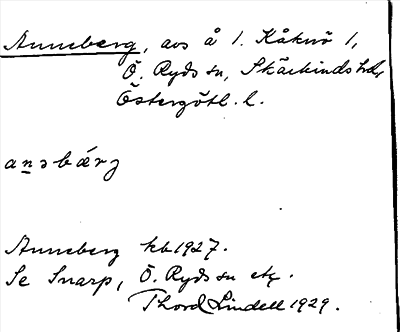 Anneberg, avs å 1. Kåknö 1,
Ö. Ryds sn, Skärkinds hd,
Östergötl. l.
anəbærj
Anneberg kb 1927.
Se Snarp, Ö. Ryds sn etc.
Thord Lindell 1929.